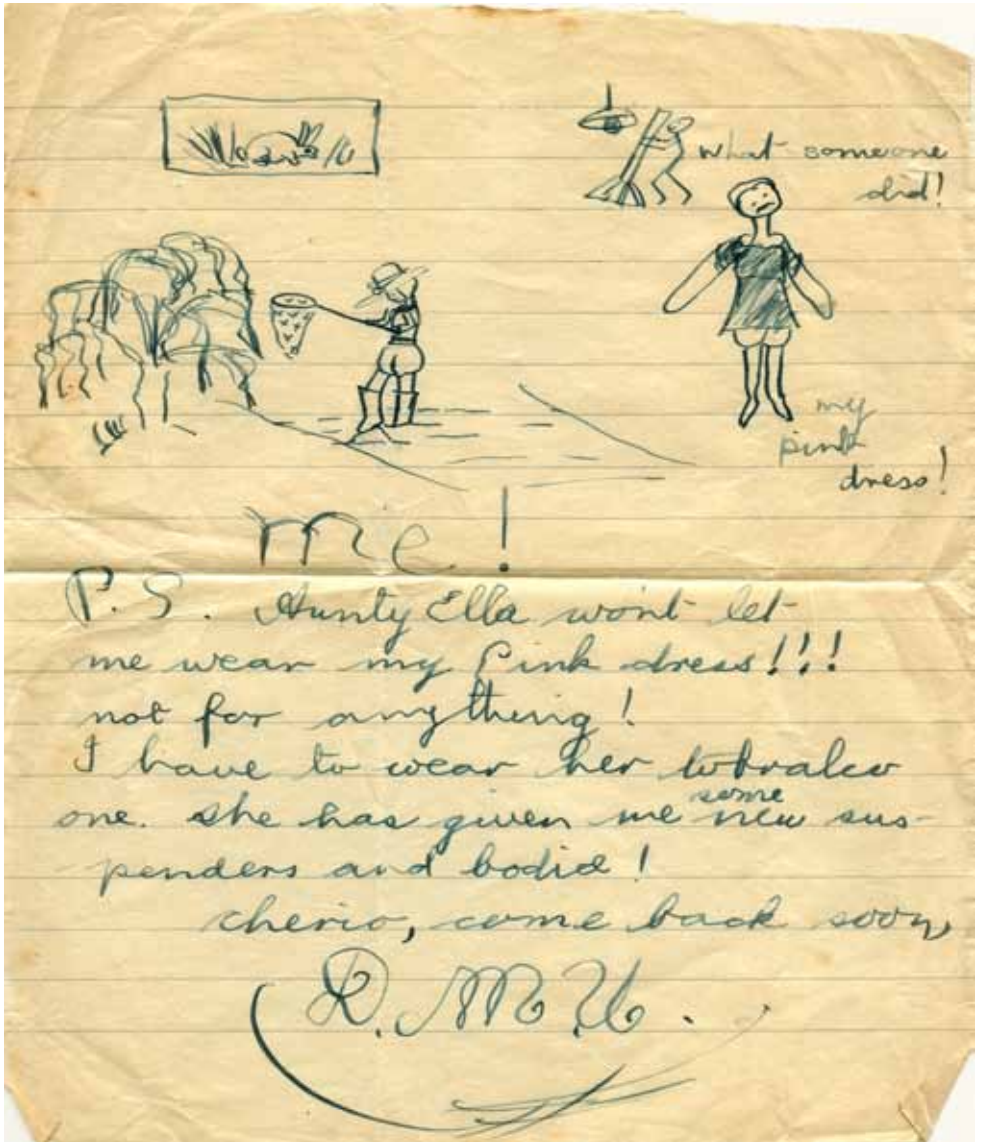 what someone
did!
my
pink
dress!
me!
P.S. Aunty Ella won't let
me wear my Pink dress!!!
not for anything!
I have to wear her tobralco
some
one. she has given me new sus-
penders and bodice!
cherio, come back soon,
D.M.U.